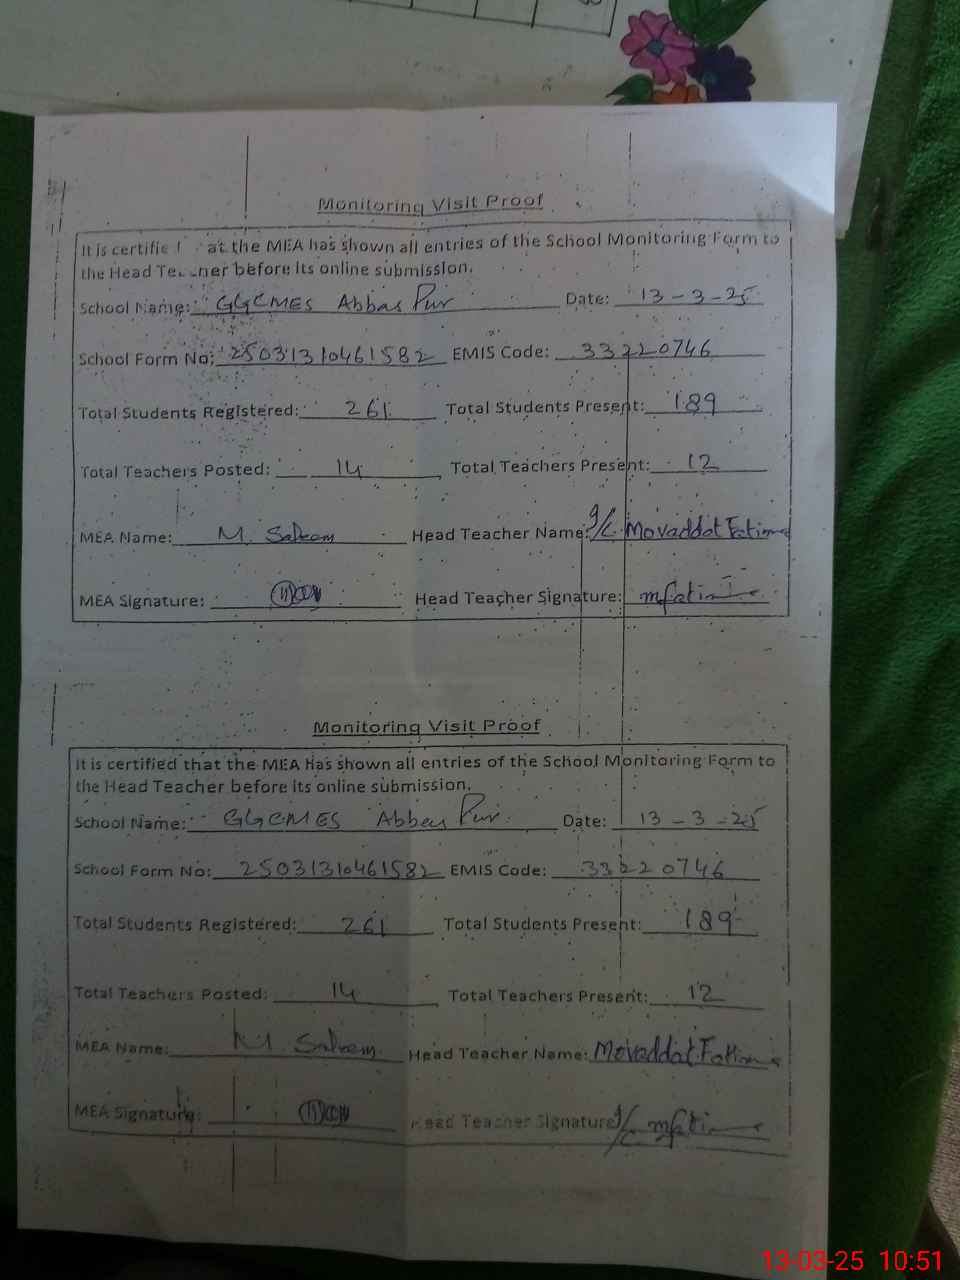 Monitoring Visit Proof
It is certifie at the MEA has shown all entries of the School Monitoring Form to
the Head Te ner before its online submission.
School Name: GGCMES Abbas Pur Date: 13-3-25
School Form No: 25031310461582 EMIS Code: 33220746
Total Students Registered: 261 Total Students Present: 189
Total Teachers Posted: 14 Total Teachers Present: 12
MEA Name: M. Saleem Head Teacher Name: I/C Movaddat Fatima
MEA Signature: Head Teacher Signature: mfatima
Monitoring Visit Proof
It is certified that the MEA has shown all entries of the School Monitoring Form to
the Head Teacher before its online submission.
School Name: GGCMES Abbas Pur. Date: 13-3-25
School Form No: 25031310461582 EMIS Code: 33220746
Total Students Registered: 261 Total Students Present: 189
Total Teachers Posted: 14 Total Teachers Present: 12
MEA Name: M Saleem Head Teacher Name: Movaddat Fatima
MEA Signature: Head Teacher Signature I/C mfatima
13-03-25 10:51